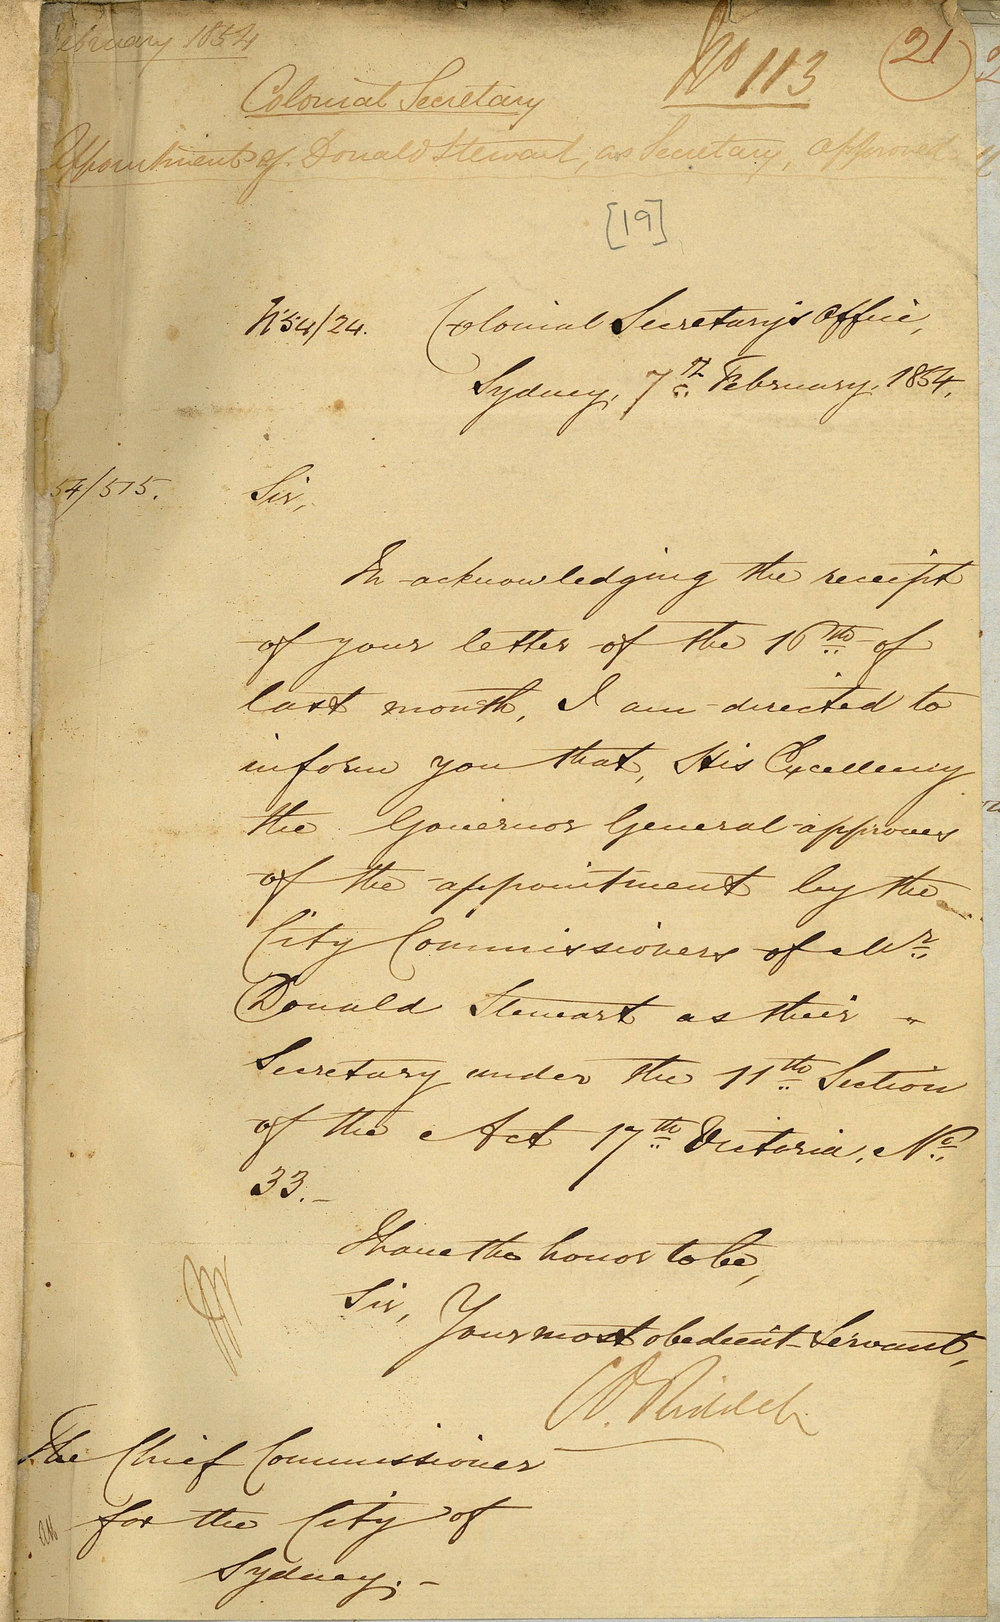 February 1854
No 113
21
Colonial Secretary
Appointment of Donald Stewart, as Secretary, approved
[19]
N 54/24. Colonial Secretary's Office,
Sydney, 7th February, 1854.
54/515. Sir,
In acknowledging the receipt
of your letter of the 16th of
last month, I am directed to
inform you that, His Excellency
the Governor General approves
of the appointment by the
City Commissioners of Mr.
Donald Stewart as their "
Secretary under the 11th Section
of the Act 17th Victoria, No.
33.—
I have the honor to be,
Sir,
Your most obedient Servant,
The Chief Commissioner
for the City of
Sydney.—